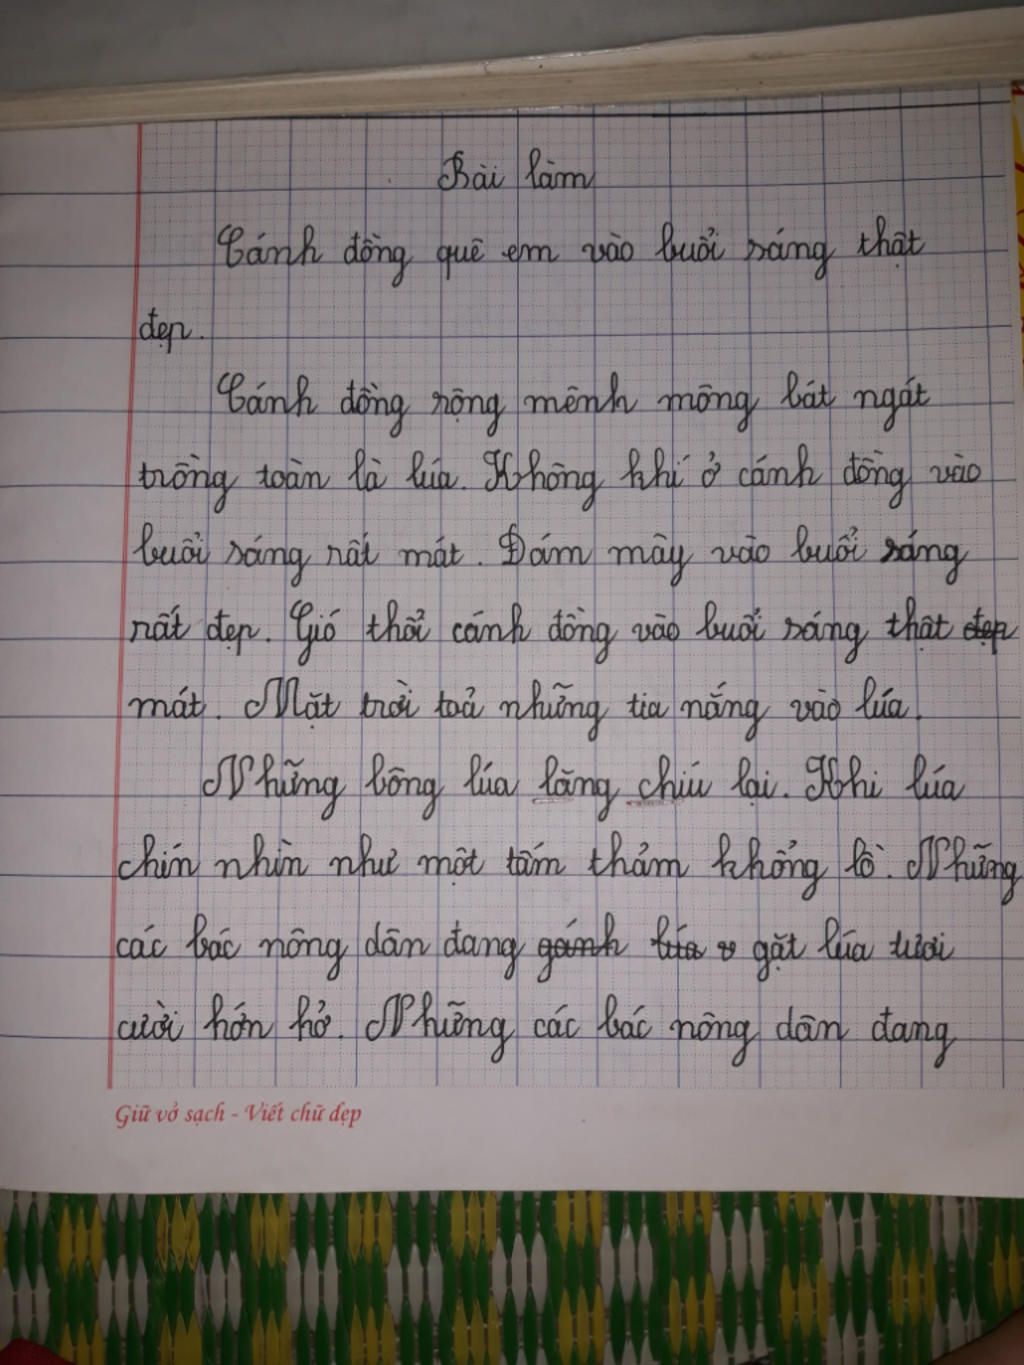 Bài làm
Cánh đồng quê em vào buổi sáng thật
đẹp.
Cánh đồng rộng mênh mông bát ngát
trồng toàn là lúa. Không khí ở cánh đồng vào
buổi sáng rất mát. Đám mây vào buổi sáng
rất đẹp. Gió thổi cánh đồng vào buổi sáng thật đẹp
mát. Mặt trời toả những tia nắng vào lúa.
Những bông lúa lăng chiú lại. Khi lúa
chín nhìn như một tấm thảm khổng lồ. Những
các bác nông dân đang gánh lúa v gặt lúa tươi
cười hớn hở. Những các bác nông dân đang
Giữ vở sạch - Viết chữ đẹp